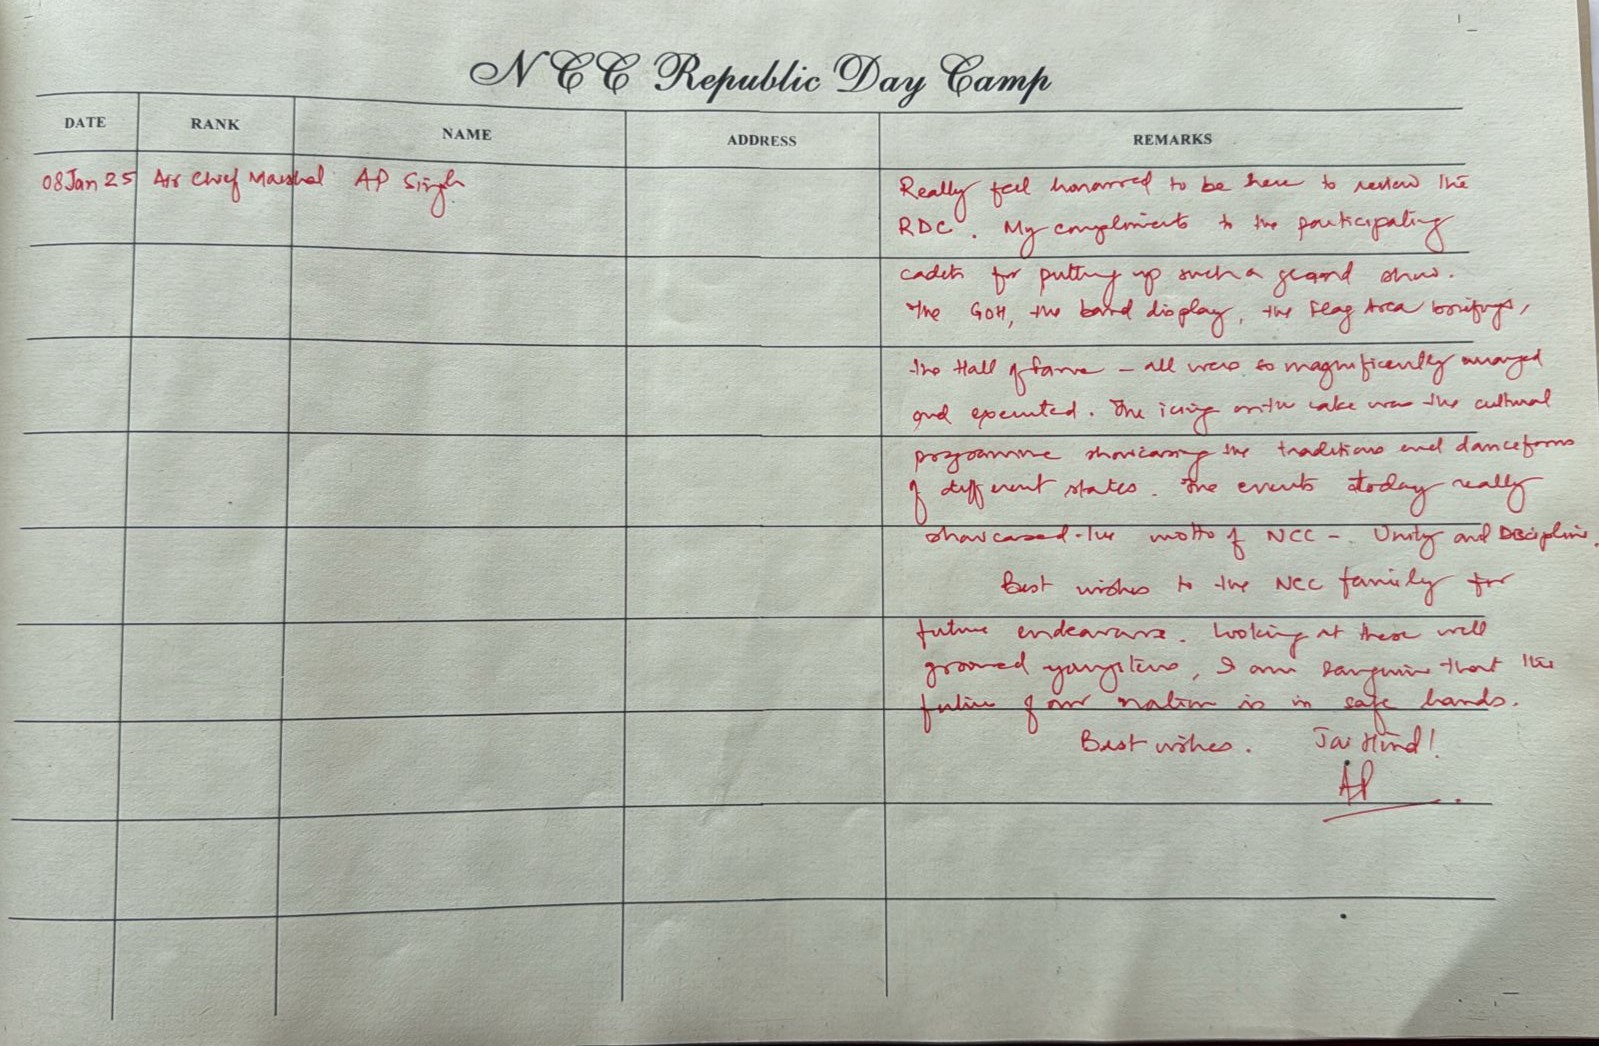 NCC Republic Day Camp
DATE RANK NAME ADDRESS REMARKS
08 Jan 25 Air Chief Marshal AP Singh
Really feel honoured to be here to review the
RDC. My compliments to the participating
cadets for putting up such a grand show.
The GOH, the band display, the Flag Area briefings,
the Hall of fame – all were so magnificently arranged
and executed. The icing on the cake was the cultural
programme showcasing the traditions and danceforms
of different states. The events today really
showcased the motto of NCC – Unity and Discipline.
Best wishes to the NCC family for
future endeavours. Looking at these well
groomed youngsters, I am sanguine that the
future of our nation is in safe hands.
Best wishes. Jai Hind!
AP